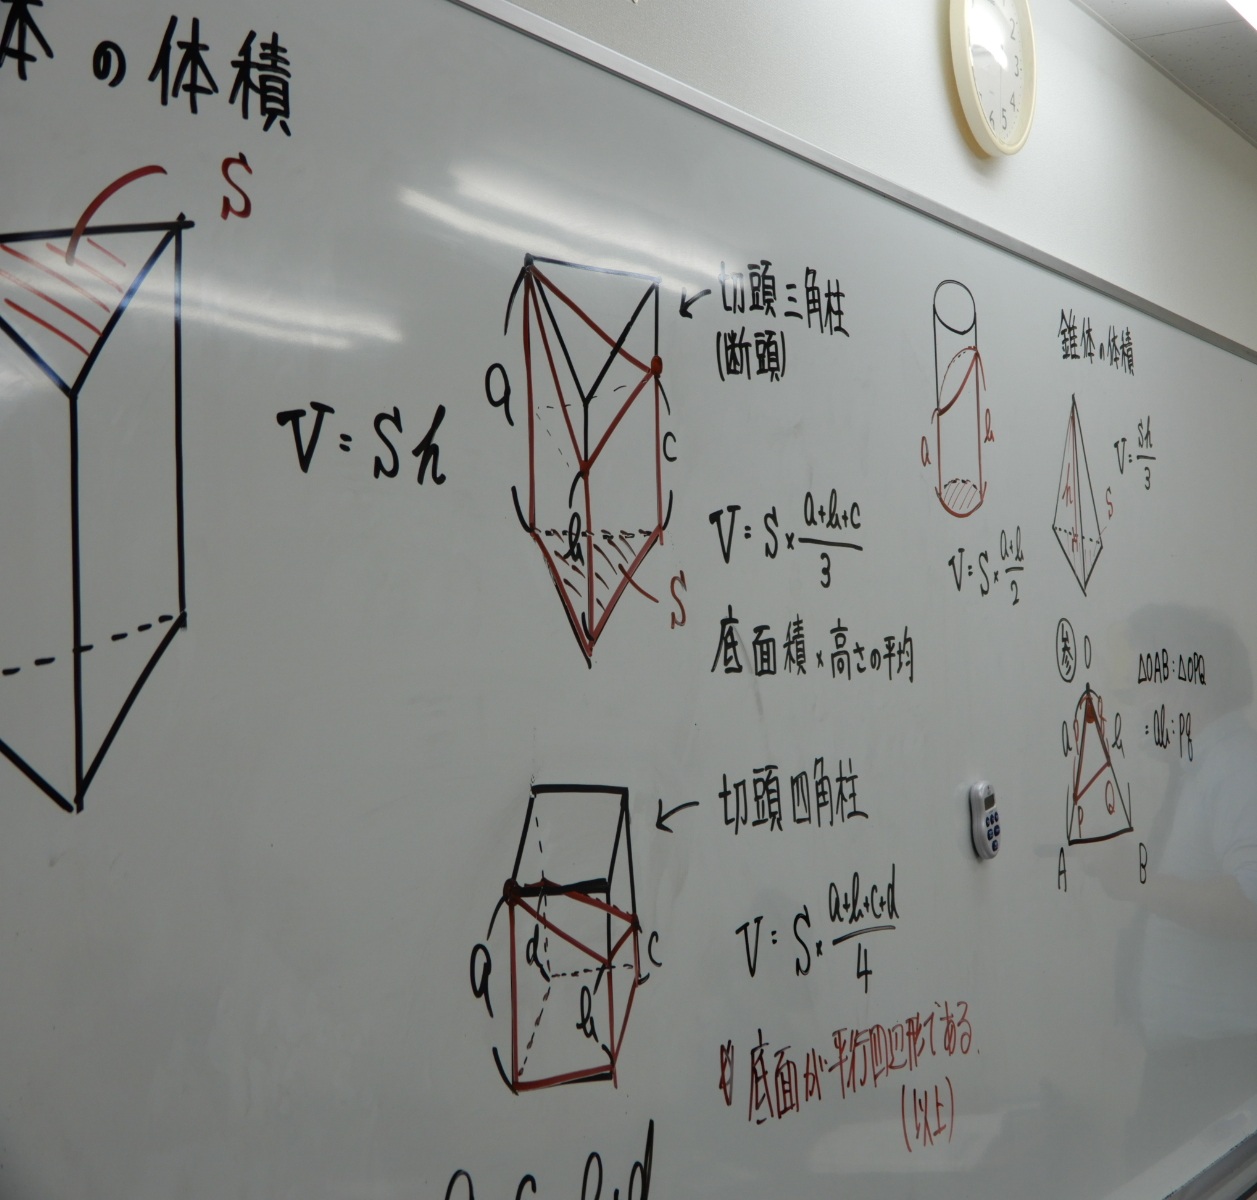 体の体積
S
V=Sh
a
b
c
S
切頭三角柱
(断頭)
V=S×(a+b+c)/3
底面積×高さの平均
a
b
V=S×(a+b)/2
錐体の体積
h
H
S
V=Sh/3
a
b
c
d
切頭四角柱
V=S×(a+b+c+d)/4
底面が平行四辺形である.
(以上)
参
O
a
p
q
b
P
Q
A
B
△OAB:△OPQ
=ab:pq
2
3
4
5
6